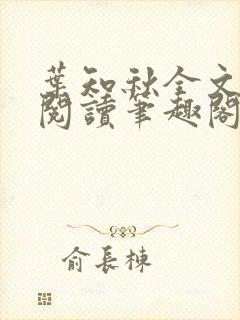 葉知秋全文
閱讀筆趣閣
俞長棟